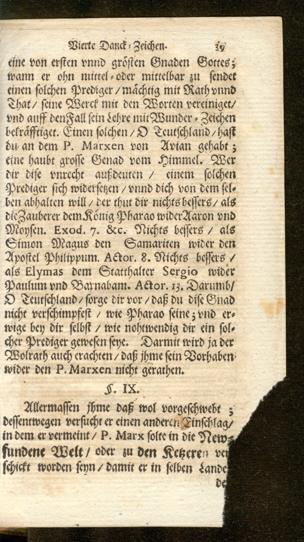 Vierte Danck-Zeichen. 39
eine von ersten vnnd grösten Gnaden Gottes;
wann er ohn mittel-oder mittelbar zu sendet
einen solchen Prediger / mächtig mit Rath vnnd
That / seine Werck mit den Worten vereiniget /
vnd auff den Fall sein Lehre mit Wunder-Zeichen
bekräfftiget. Einen solchen / O Teutschland / hast
du an dem P. Marxen von Avian gehabt;
eine haubt grosse Genad vom Himmel. Wer
dir dise vnrecht außdeuten / einem solchen
Prediger sich widersetzen / vnnd dich von dem sel-
ben abhalten will / der thut dir nichts bessers / als
die Zauberer dem König Pharao wider Aaron vnd
Moysen. Exod. 7. &c. Nichts bessers / als
Simon Magus den Samariten wider den
Apostel Philippum. Actor. 8. Nichts bessers /
als Elymas dem Statthalter Sergio wider
Paulum vnd Barnabam. Actor. 13. Darumb /
O Teutschland / sorge dir vor / daß du dise Gnad
nicht verschimpfest / wie Pharao seine; vnd er-
wige bey dir selbst / wie nohtwendig dir ein sol-
cher Prediger gewesen seye. Darmit wird ja der
Wolrath auch erachten / daß jhme sein Vorhaben
wider den P. Marxen nicht gerathen.
§. IX.
Allermassen jhme daß wol vorgeschwebt;
dessentwegen versucht er einen anderen Einschlag /
in dem er vermeint / P. Marx solte in die New-
fundene Welt / oder zu den Ketzeren ver
schickt worden seyn / damit er in selben Lande
de